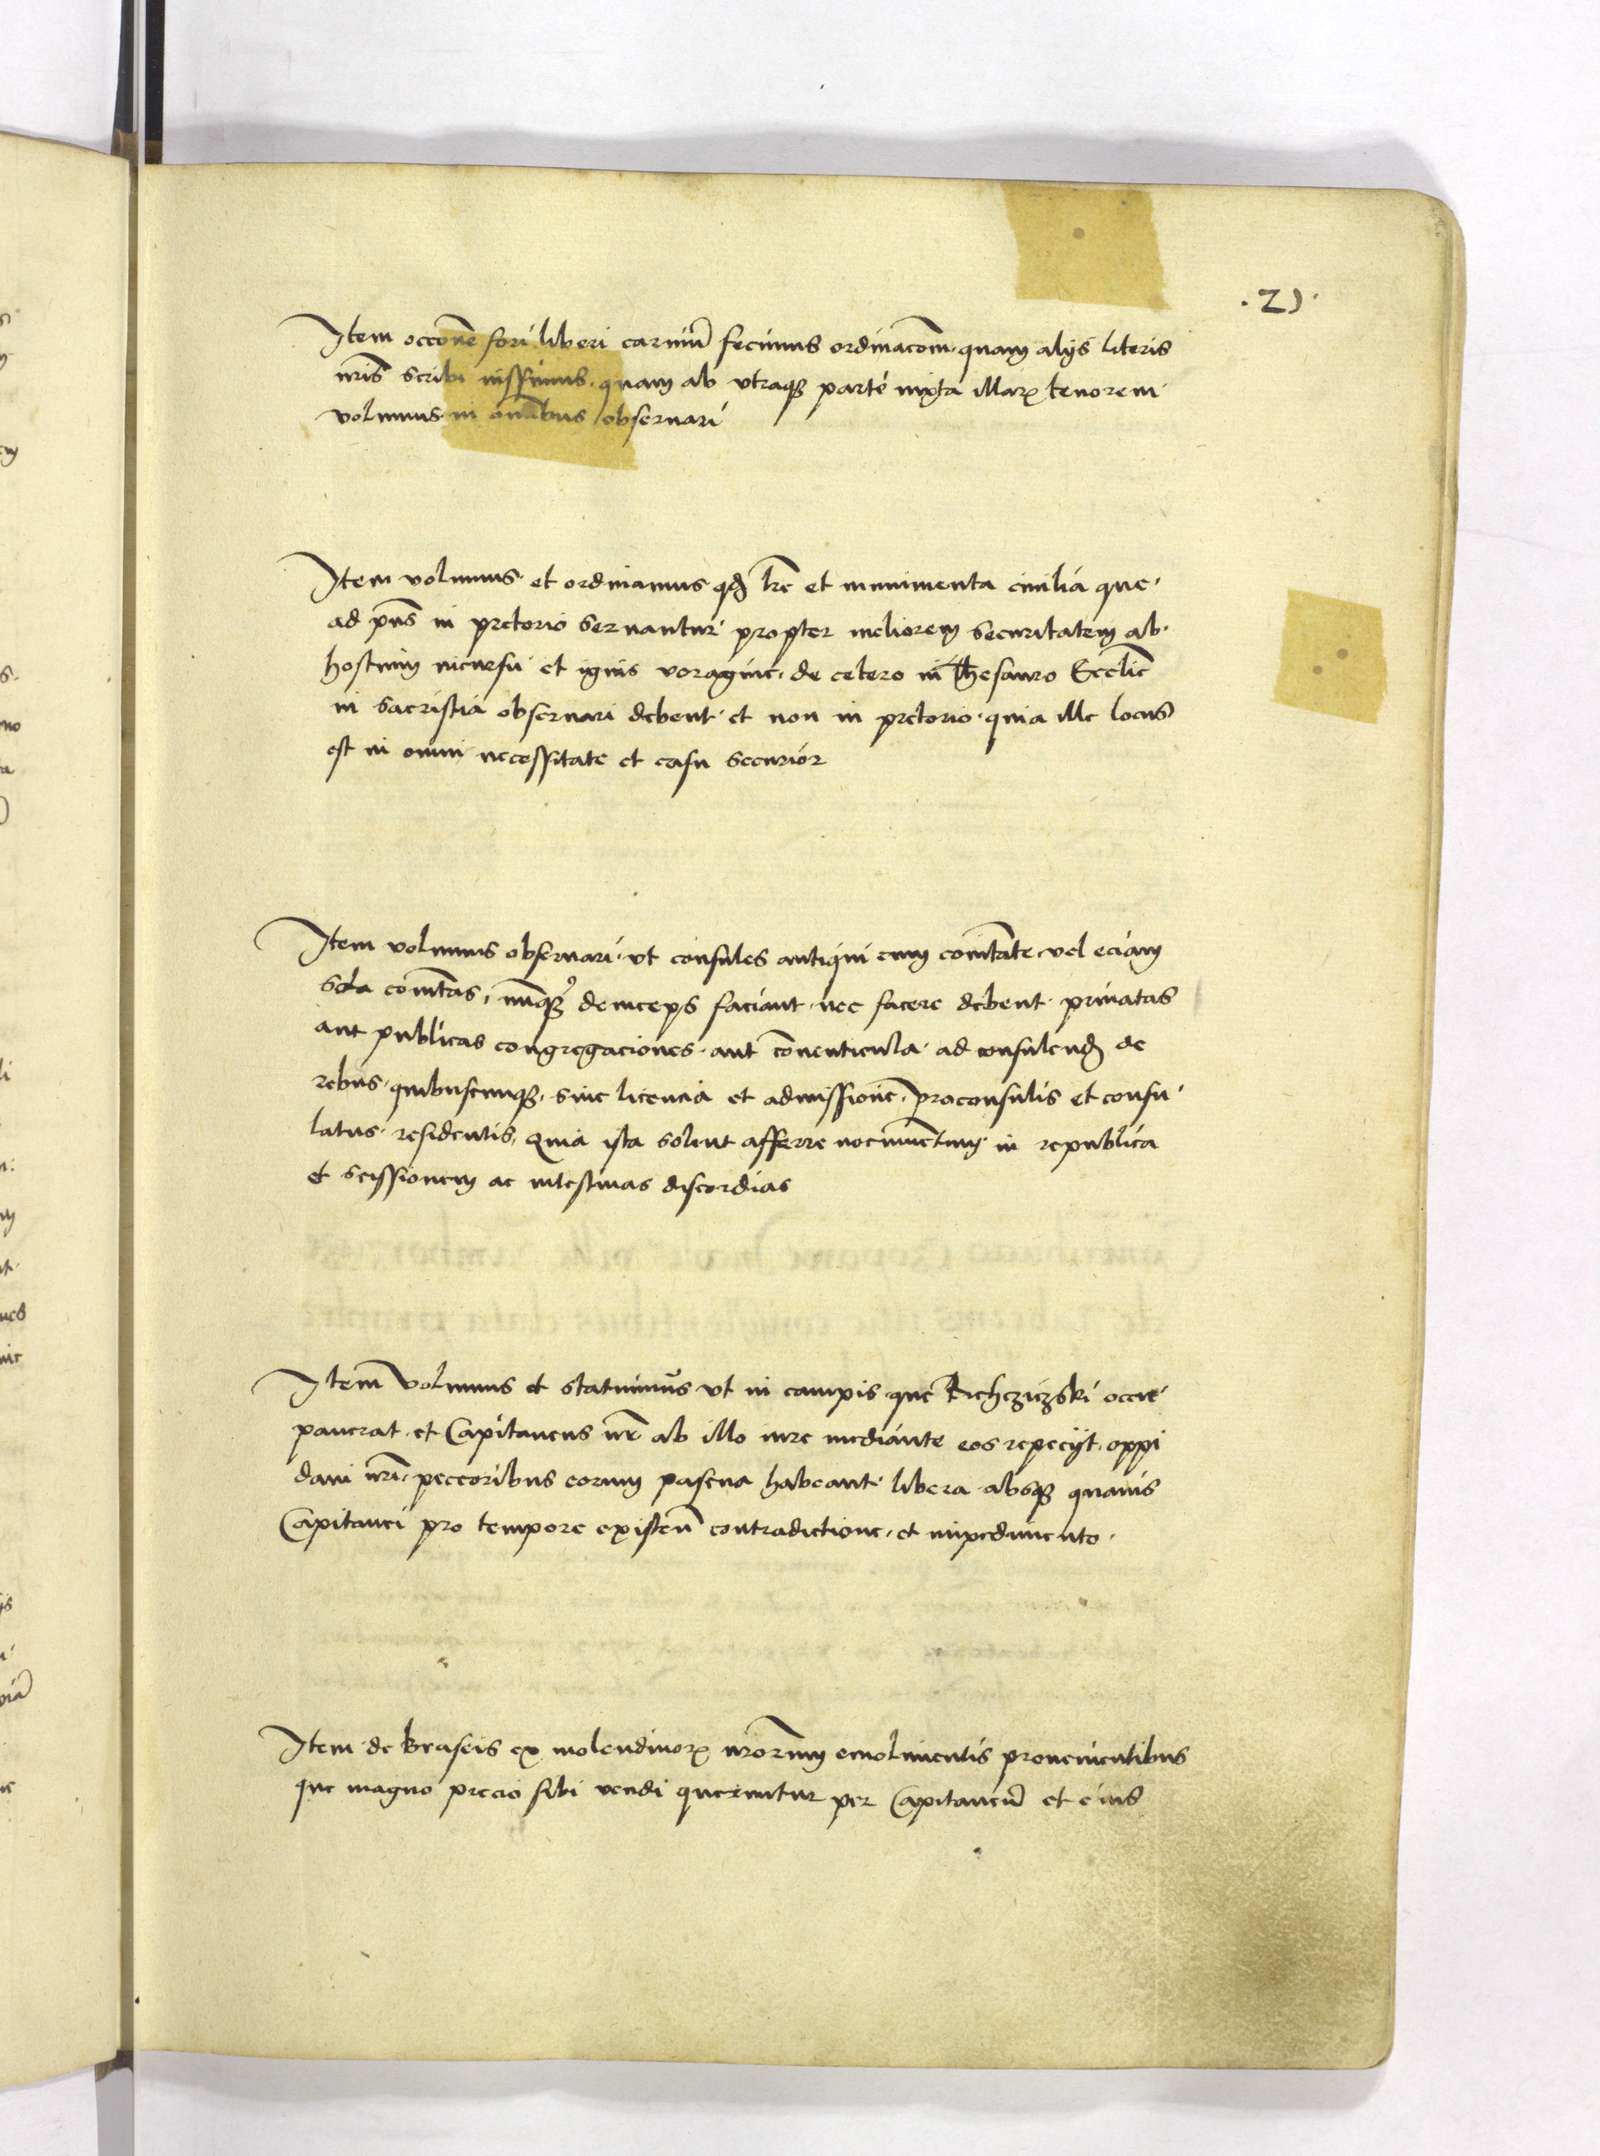 .21.
Item occōne fori liberi carniū fecimus ordinacōm quam alijs literis
nr̄is scribi iussimus quam ab vtraqꝫ parte iuxta illarꝝ tenorem
volumus in om̄ibus obseruari
Item volumus et ordinamus qđ lr̄e et munimenta ciuilia que
ad pn̄s in pretorio seruantur propter meliorem securitatem ab
hostium incursu et ignis voragine de cetero in Thesauro Ecclīe
in sacristia obseruari debent et non in pretorio quia ille locus
est in omni necessitate et casu securior
Item volumus obseruari vt consules antiqui cum cōmītate vel eciam
sola cōmītas nūqꝫ deinceps faciant nec facere debent priuatas
aut publicas congregaciones aut cōuenticula ad consulend de
rebus quibuscunqꝫ sine licencia et admissione proconsulis et consu
latus residentis Quia ista solent afferre nocumentum in republica
et scissionem ac intestinas discordias
Item volumus et statuimus vt in campis que Richcziczski occu
pauerat et Capitaneus nr̄ ab illo iure mediante eos repecijt oppi
dani nr̄i peccoribus eorum pascua habeant libera absqꝫ quauis
Capitanei pro tempore existen̄ contradictione et impedimento
Item de braseis ex molendinorꝝ nr̄orum emolimentis prouenientibus
que magno precio sibi vendi queruntur per Capitaneū et eius